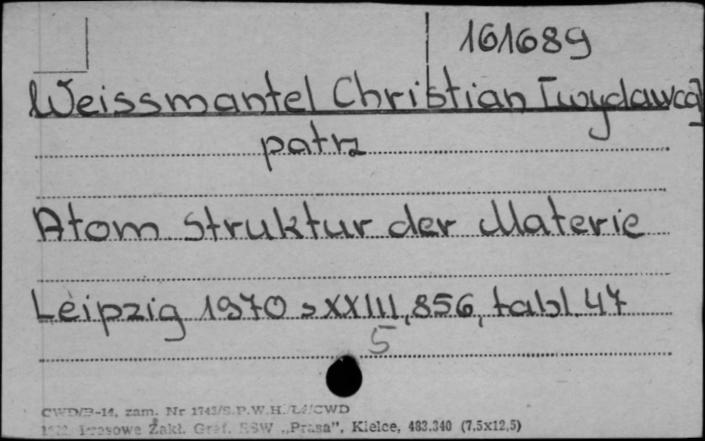 161689
Weissmantel Christian [wydawca]
patrz
Atom Struktur der Materie
Leipzig 1970 s XXIII, 856, tabl. 47
5
CWD/B-14, zam. Nr 1743/S.P.W.H./L//CWD
Prasowe Zakł. Graf. RSW „Prasa", Kielce, 483.340 (7,5x12,5)